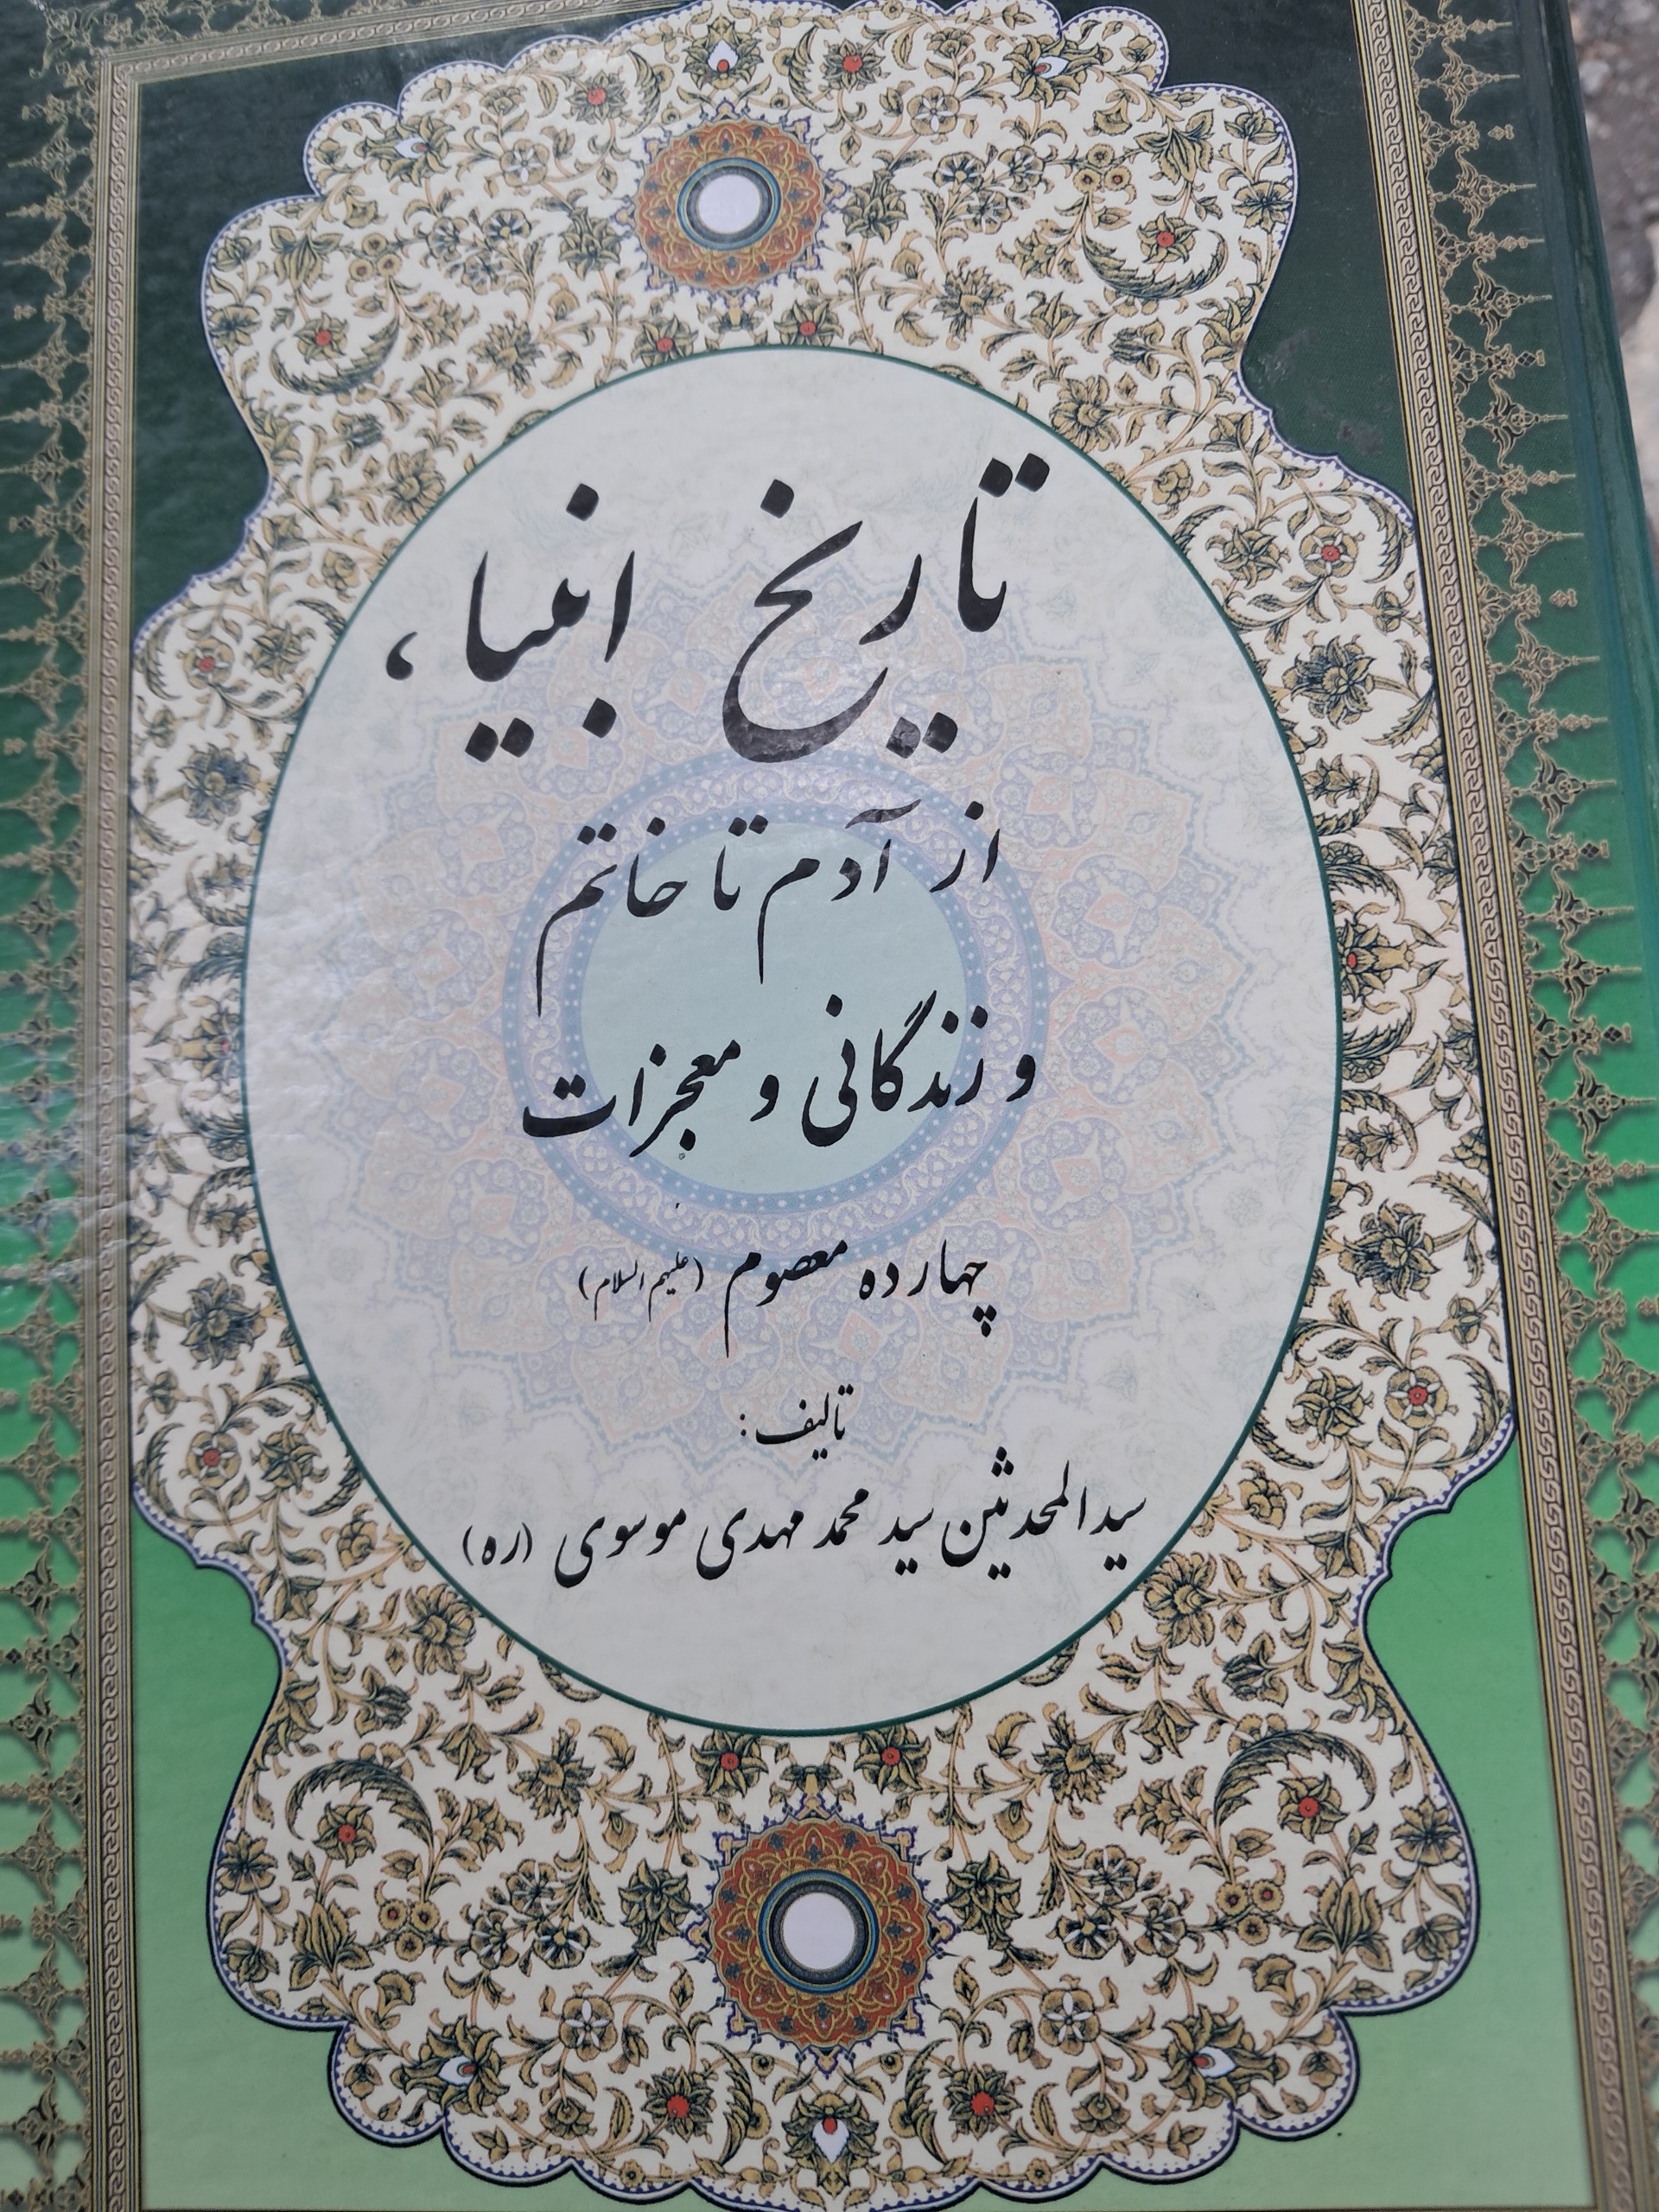 تاریخ انبیاء
از آدم تا خاتم
و زندگانی و معجزات
چهارده معصوم (علیهم السلام)
تالیف:
سید المحدثین سید محمد مهدی موسوی (ره)